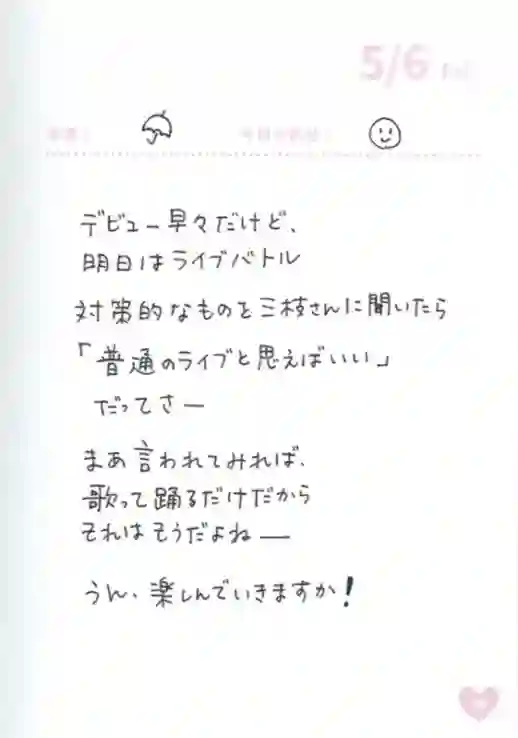 5/6
デビュー早々だけど、
明日はライブバトル
対策的なものを三枝さんに聞いたら
「普通のライブと思えばいい」
だってさー
まあ言われてみれば、
歌って踊るだけだから
それはそうだよねー
うん、楽しんでいきますか！